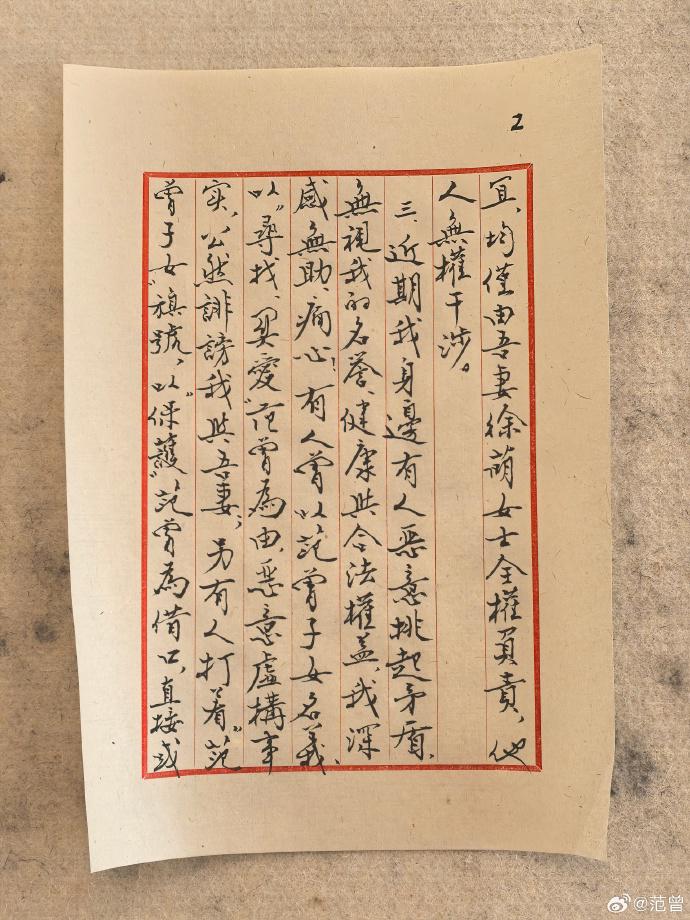 2
宜,均僅由吾妻徐萌女士全權負責,他
人無權干涉。
三、近期我身邊有人惡意挑起矛盾,
無視我的名譽、健康與合法權益,我深
感無助、痛心,有人曾以范曾子女名義,
以“尋找、關愛”范曾為由,惡意虛構事
实,公然誹謗我與吾妻,另有人打着“范
曾子女”旗號,以“保護”范曾為借口,直接或
@范曾